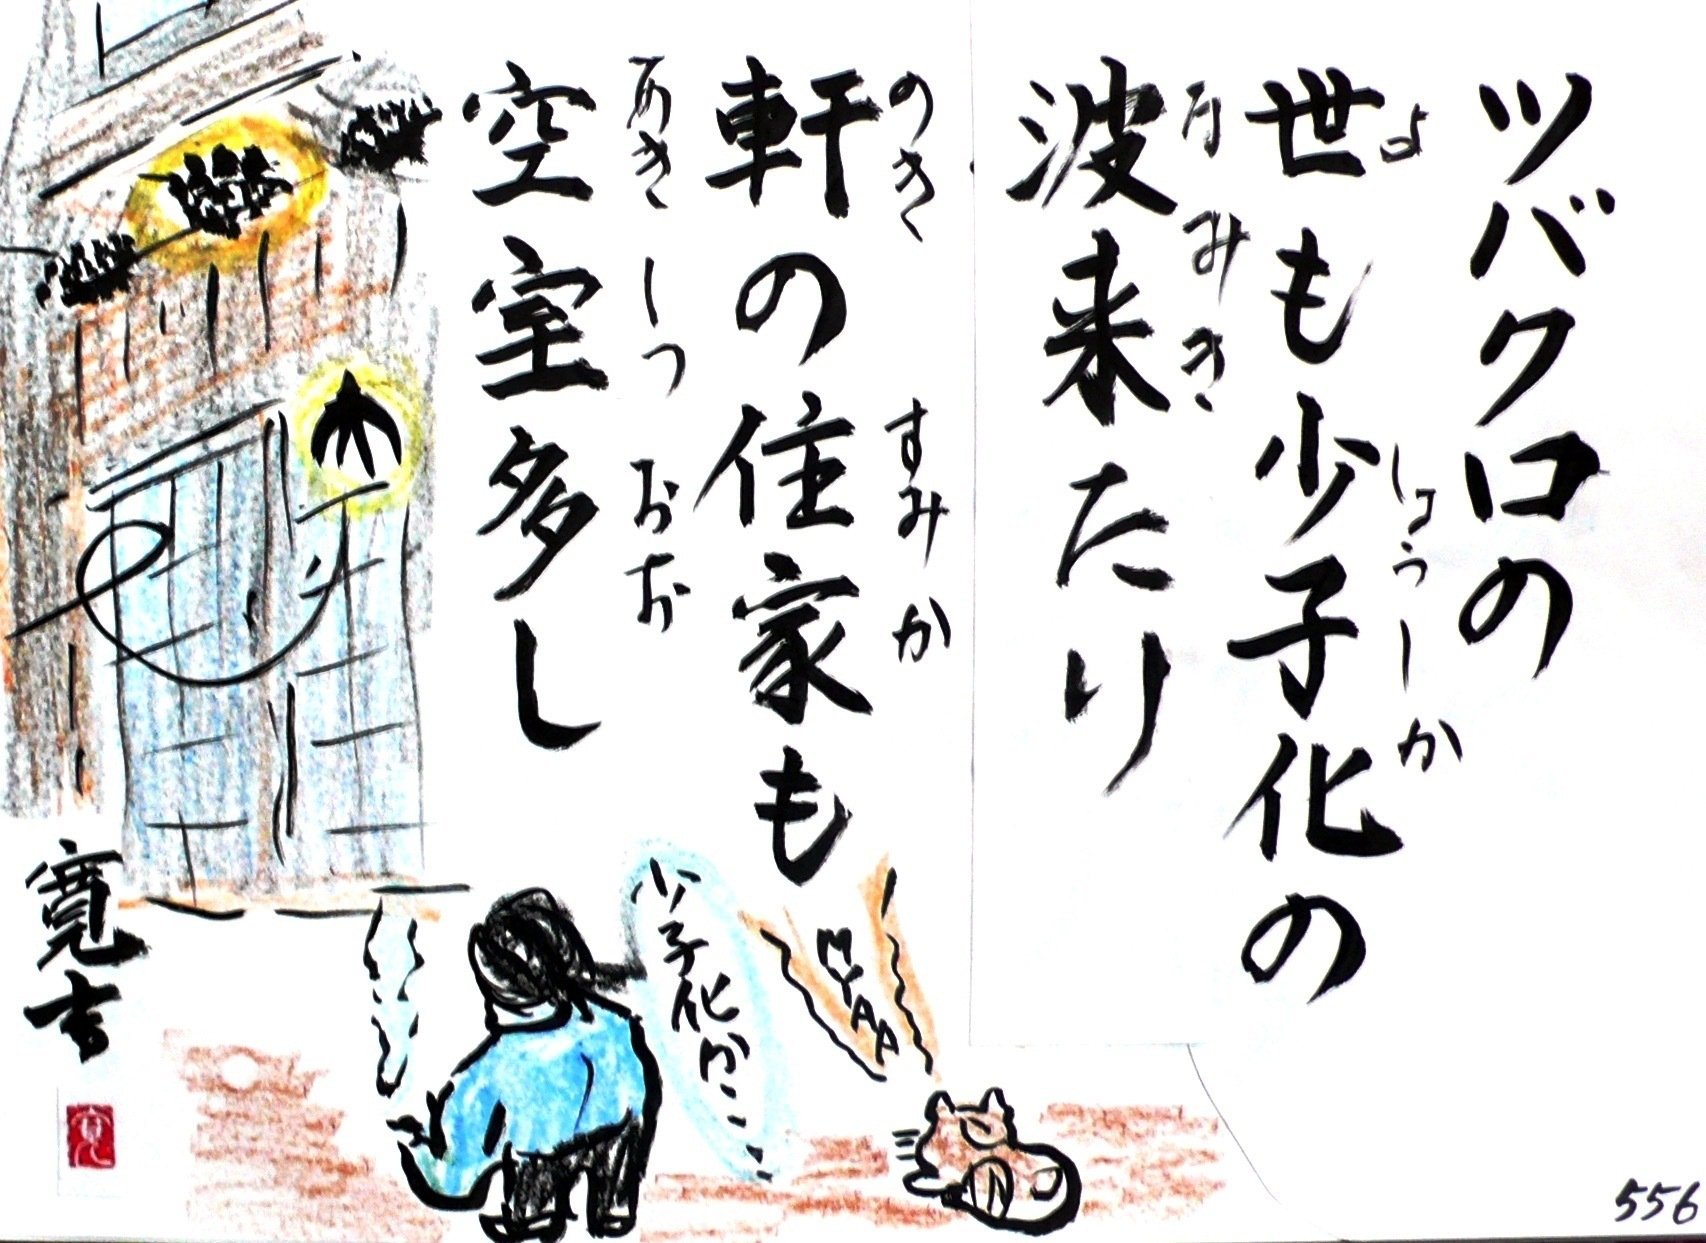 ツバクロの
世も少子化の
よ しょうしか
波来たり
なみき
軒の住家も
のき すみか
空室多し
あきしつおお
少子化か…
MYAA
寛吉
556